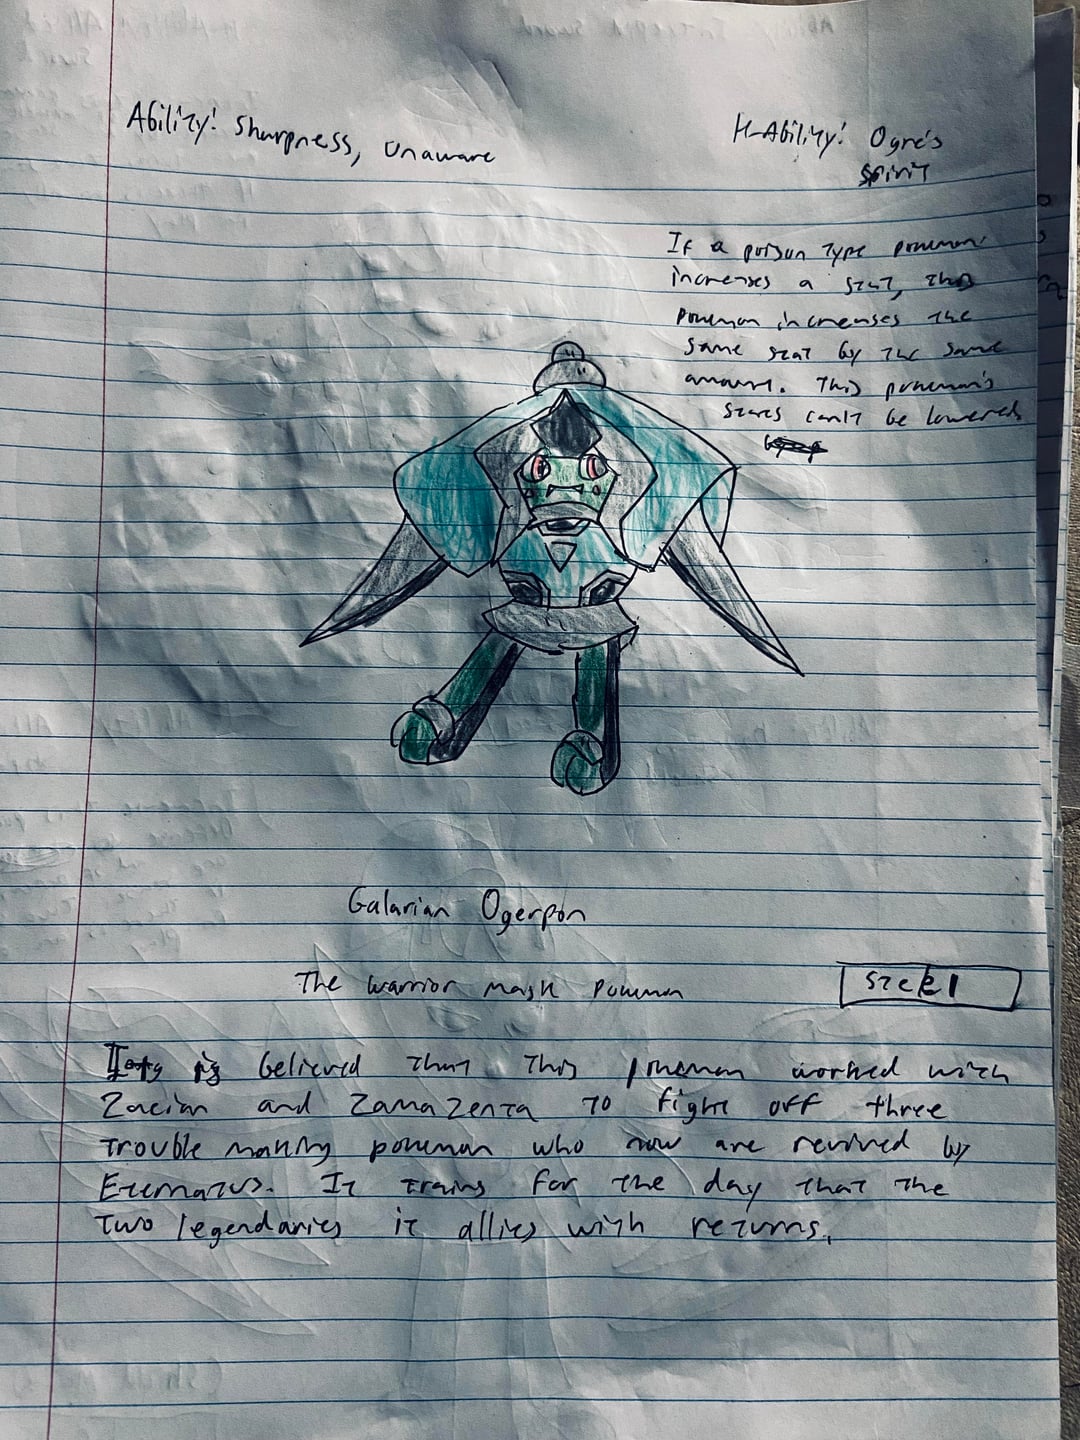 Ability: Sharpness, Unaware
H-Ability: Ogre's
Spirit
If a poison type pokemon
increases a stat, this
pokemon increases the
same stat by the same
amount. This pokemon's
stats can't be lowered
Galarian Ogerpon
The warrior mask pokemon
Steel
is believed that this pokemon worked with
Zacian and Zamazenta to fight off three
trouble making pokemon who now are revived by
Eternatus. It trains for the day that the
two legendaries it allies with returns.